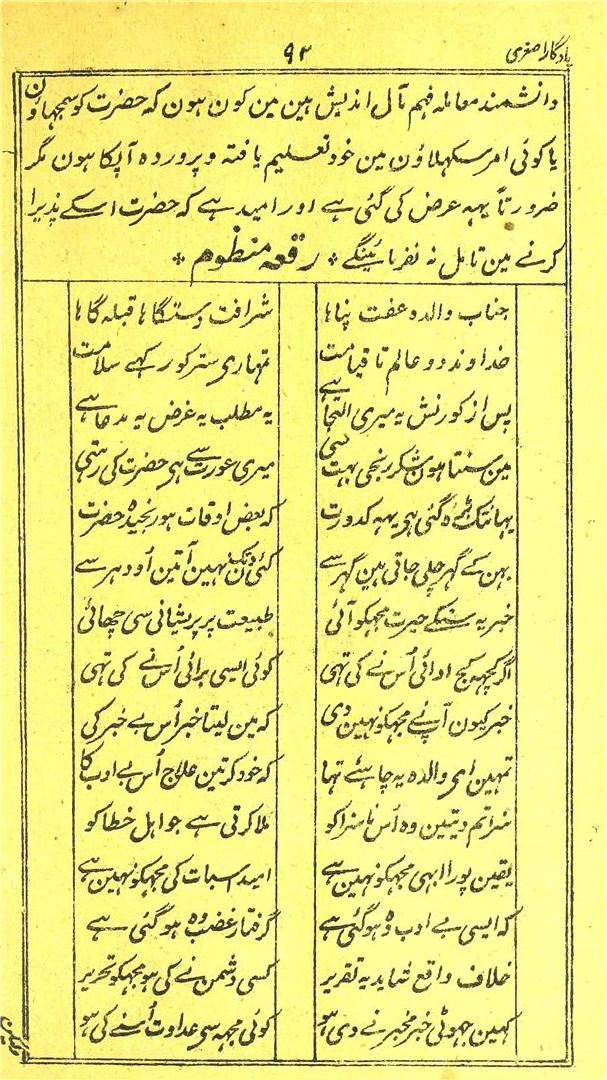 یادگار اصغری
۹۲
دانشمند معاملہ فہم مآل اندیش ہین مین کون ہون کہ حضرت کو سمجھاؤن
یا کوئی امر سکھلاؤن مین خود تعلیم یافتہ و پروردہ آپکا ہون مگر
ضرورتاً یہہ عرض کی گئی ہے اور امید ہے کہ حضرت اسکے پذیرا
کرنے مین تامل نہ نفرمائینگے * رقعہ منظوم *
جناب والدہ عفت پناہا شرافت دستگاہا قبلہ گاہا
خداوند دو عالم تا قیامت تمہاری ستر کو رکہے سلامت
پس از کورنش یہ میری التجا ہے یہ مطلب یہ غرض یہ مدعا ہے
مین سنتا ہون شکر رنجی بہت سی میری عورت سے ہی حضرت کی رہتی
یہانتک بڑہ گئی ہی یہہ کدورت کہ بعض اوقات ہو رنجیدہ حضرت
بہن کے گہر چلی جاتی ہین گہر سے کئی دن تک نہین آتین اودہر سے
خبر یہ سنکے حیرت مجہکو آئی طبیعت پر پریشانی سی چھائی
اگر کچہہ کج ادائی اُس نے کی تہی کوئی ایسی برائی اُس نے کی تہی
خبر کیون آپنے مجہکو نہین دی کہ مین لیتا خبر اُس بے خبر کی
تمہین ای والدہ یہ چاہئے تہا کہ خود کرتین علاج اُس بے ادب کا
سزا تم دیتین وہ اُس ناسزا کو ملا کرتی ہے جو اہل خطا کو
یقین پورا ابہی مجہکو نہین ہے امید اسبات کی مجہکو نہین ہے
کہ ایسی بے ادب وہ ہو گئی ہے گرفتار غضب وہ ہو گئی ہے
خلاف واقع شاید یہ تقریر کسی دشمن نے کی ہو مجہکو تحریر
کہین جہوٹی خبر مخبر نے دی ہو کوئی مجہہ سی عداوت اُسنے کی ہو